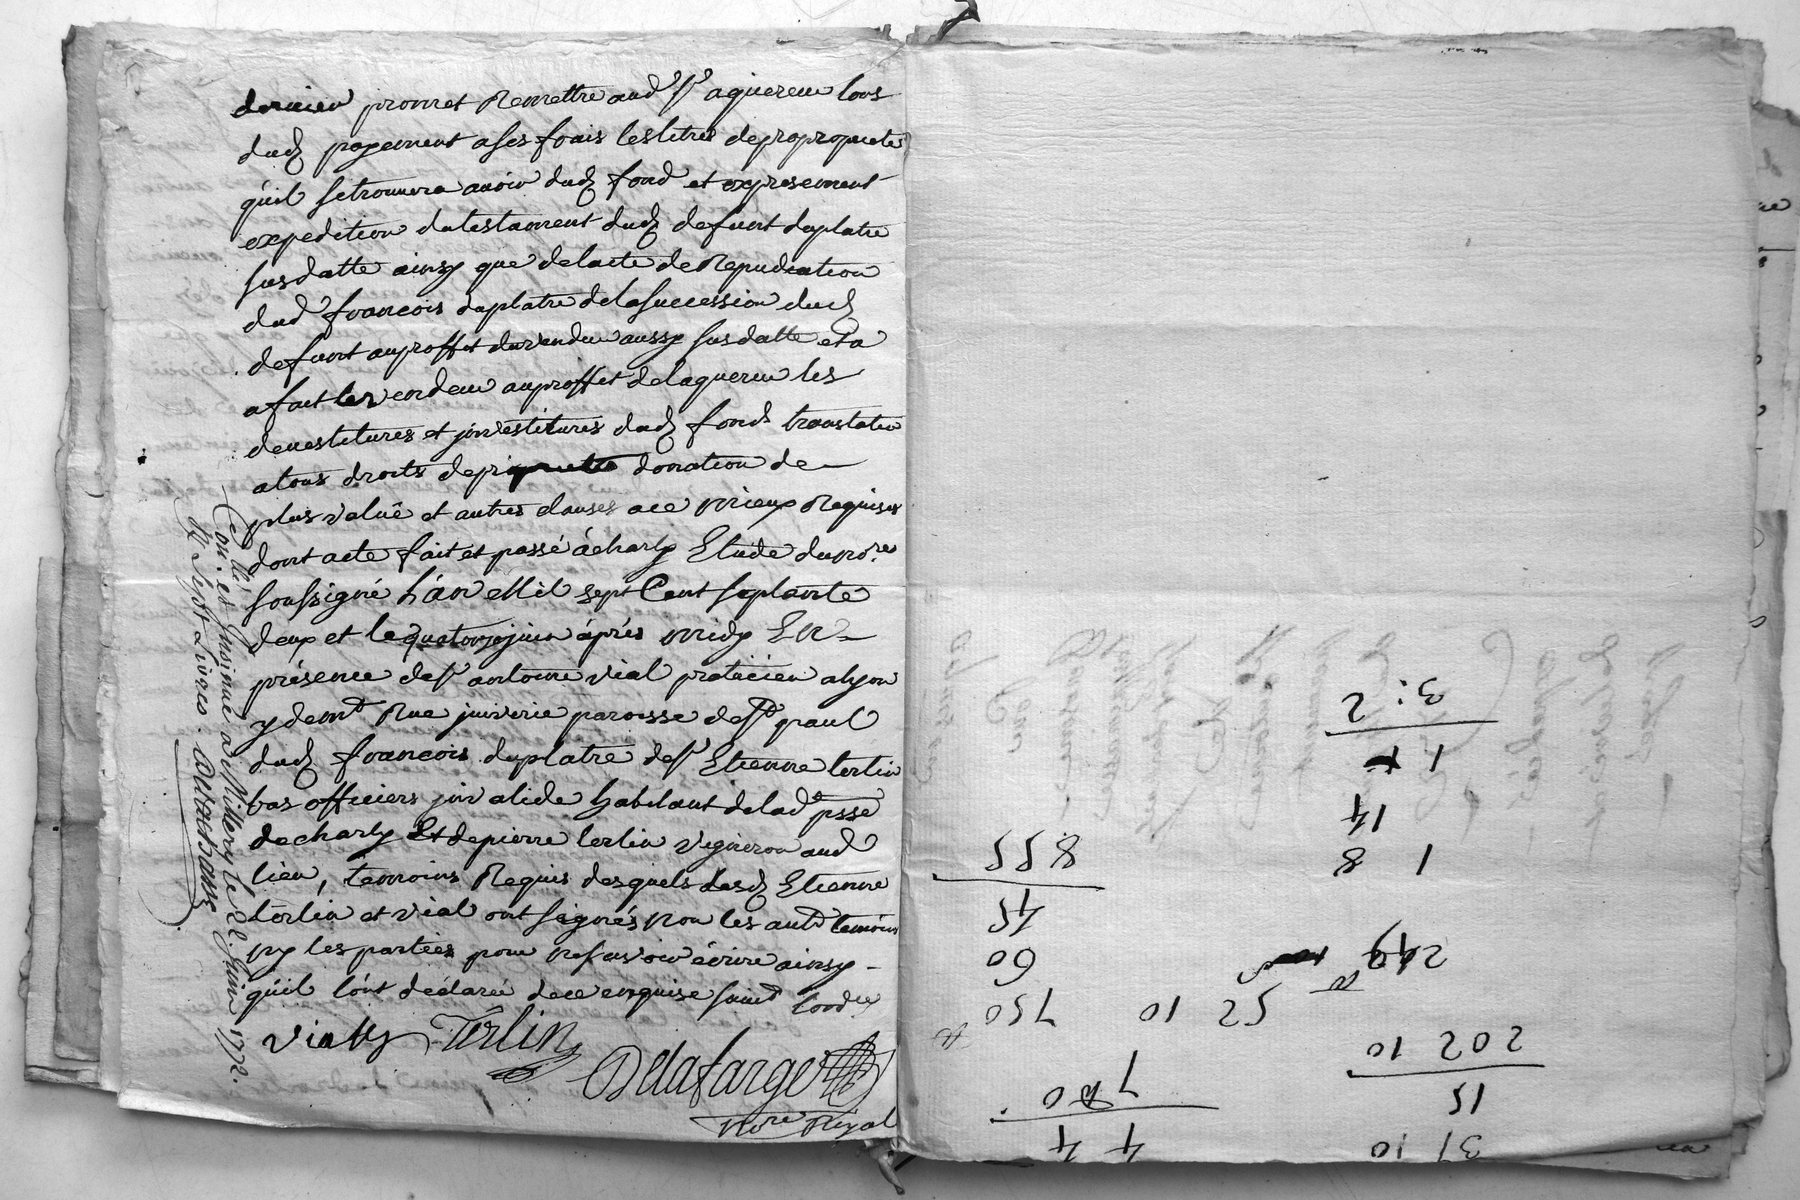 dernier promet Remettre aud sr aquereur lors
dud payement a ses frais les titres de propropriete
quil se trouvera avoir dud fond et expressement
expedition du testament dud defunt duplatre
susdatte ainsy que de lacte de Repudiation
dud francois duplatre de la succession dud
defunt au proffit du vendeur aussy susdatte et a
a fait le vendeur au proffit de laquereur les
devestitures et jnvestitures dud fonds translation
a tous droits de proprieté donation de
plus valuë et autres clauses a ce mieux Requises
dont acte fait et passé à charly Etude du nore
soussigné L'an Mil sept Cent soixante
deux et le quatorze juin après midy En
présence de sr antoine vial praticien a lyon
y demt Rue juiverie paroisse de st paul
dud francois duplatre de sr Etienne terlin
bas officiers jnvalide habitant de lad psse
de charly Et de pierre terlin vigneron aud
lieu, temoins Requis desquels lesd Etienne
terlin et vial ont signés non les autd temoins
ny les parties pour ne savoir écrire ainsy
quil l'ont déclaré de ce enquis et sommé
Vialy Terlin
Delafarge
Nore Royal
Cellé,
con. et Insinué à Millery le 22. Juin 1772.
R. Sept Livres. Delarsasse
3: 2
1
14
1 8
855
45
60
750
52 10
249
202 10
15
37 10
7
4 4